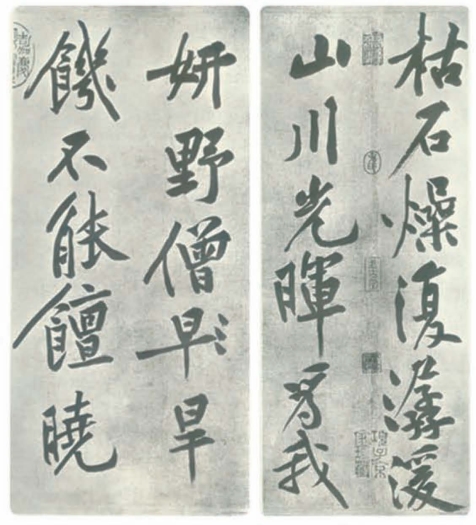 枯石燥復潺湲
山川光暉為我
妍野僧早旱
饑不能饘曉